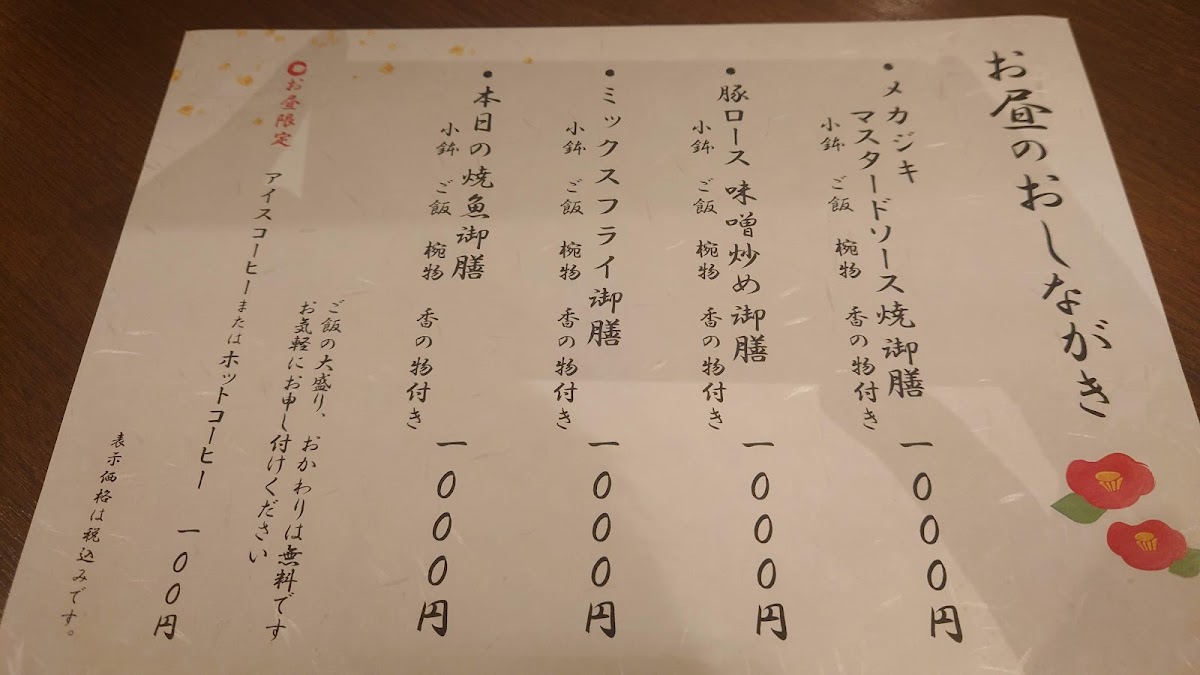 お昼のおしながき
・メカジキ
マスタードソース焼御膳
小鉢 ご飯 椀物 香の物付き
一〇〇〇円
・豚ロース 味噌炒め御膳
小鉢 ご飯 椀物 香の物付き
一〇〇〇円
・ミックスフライ御膳
小鉢 ご飯 椀物 香の物付き
一〇〇〇円
・本日の焼魚御膳
小鉢 ご飯 椀物 香の物付き
一〇〇〇円
ご飯の大盛り、おかわりは無料です
お気軽にお申し付けください
〇お昼限定
アイスコーヒーまたはホットコーヒー 一〇〇円
表示価格は税込みです。